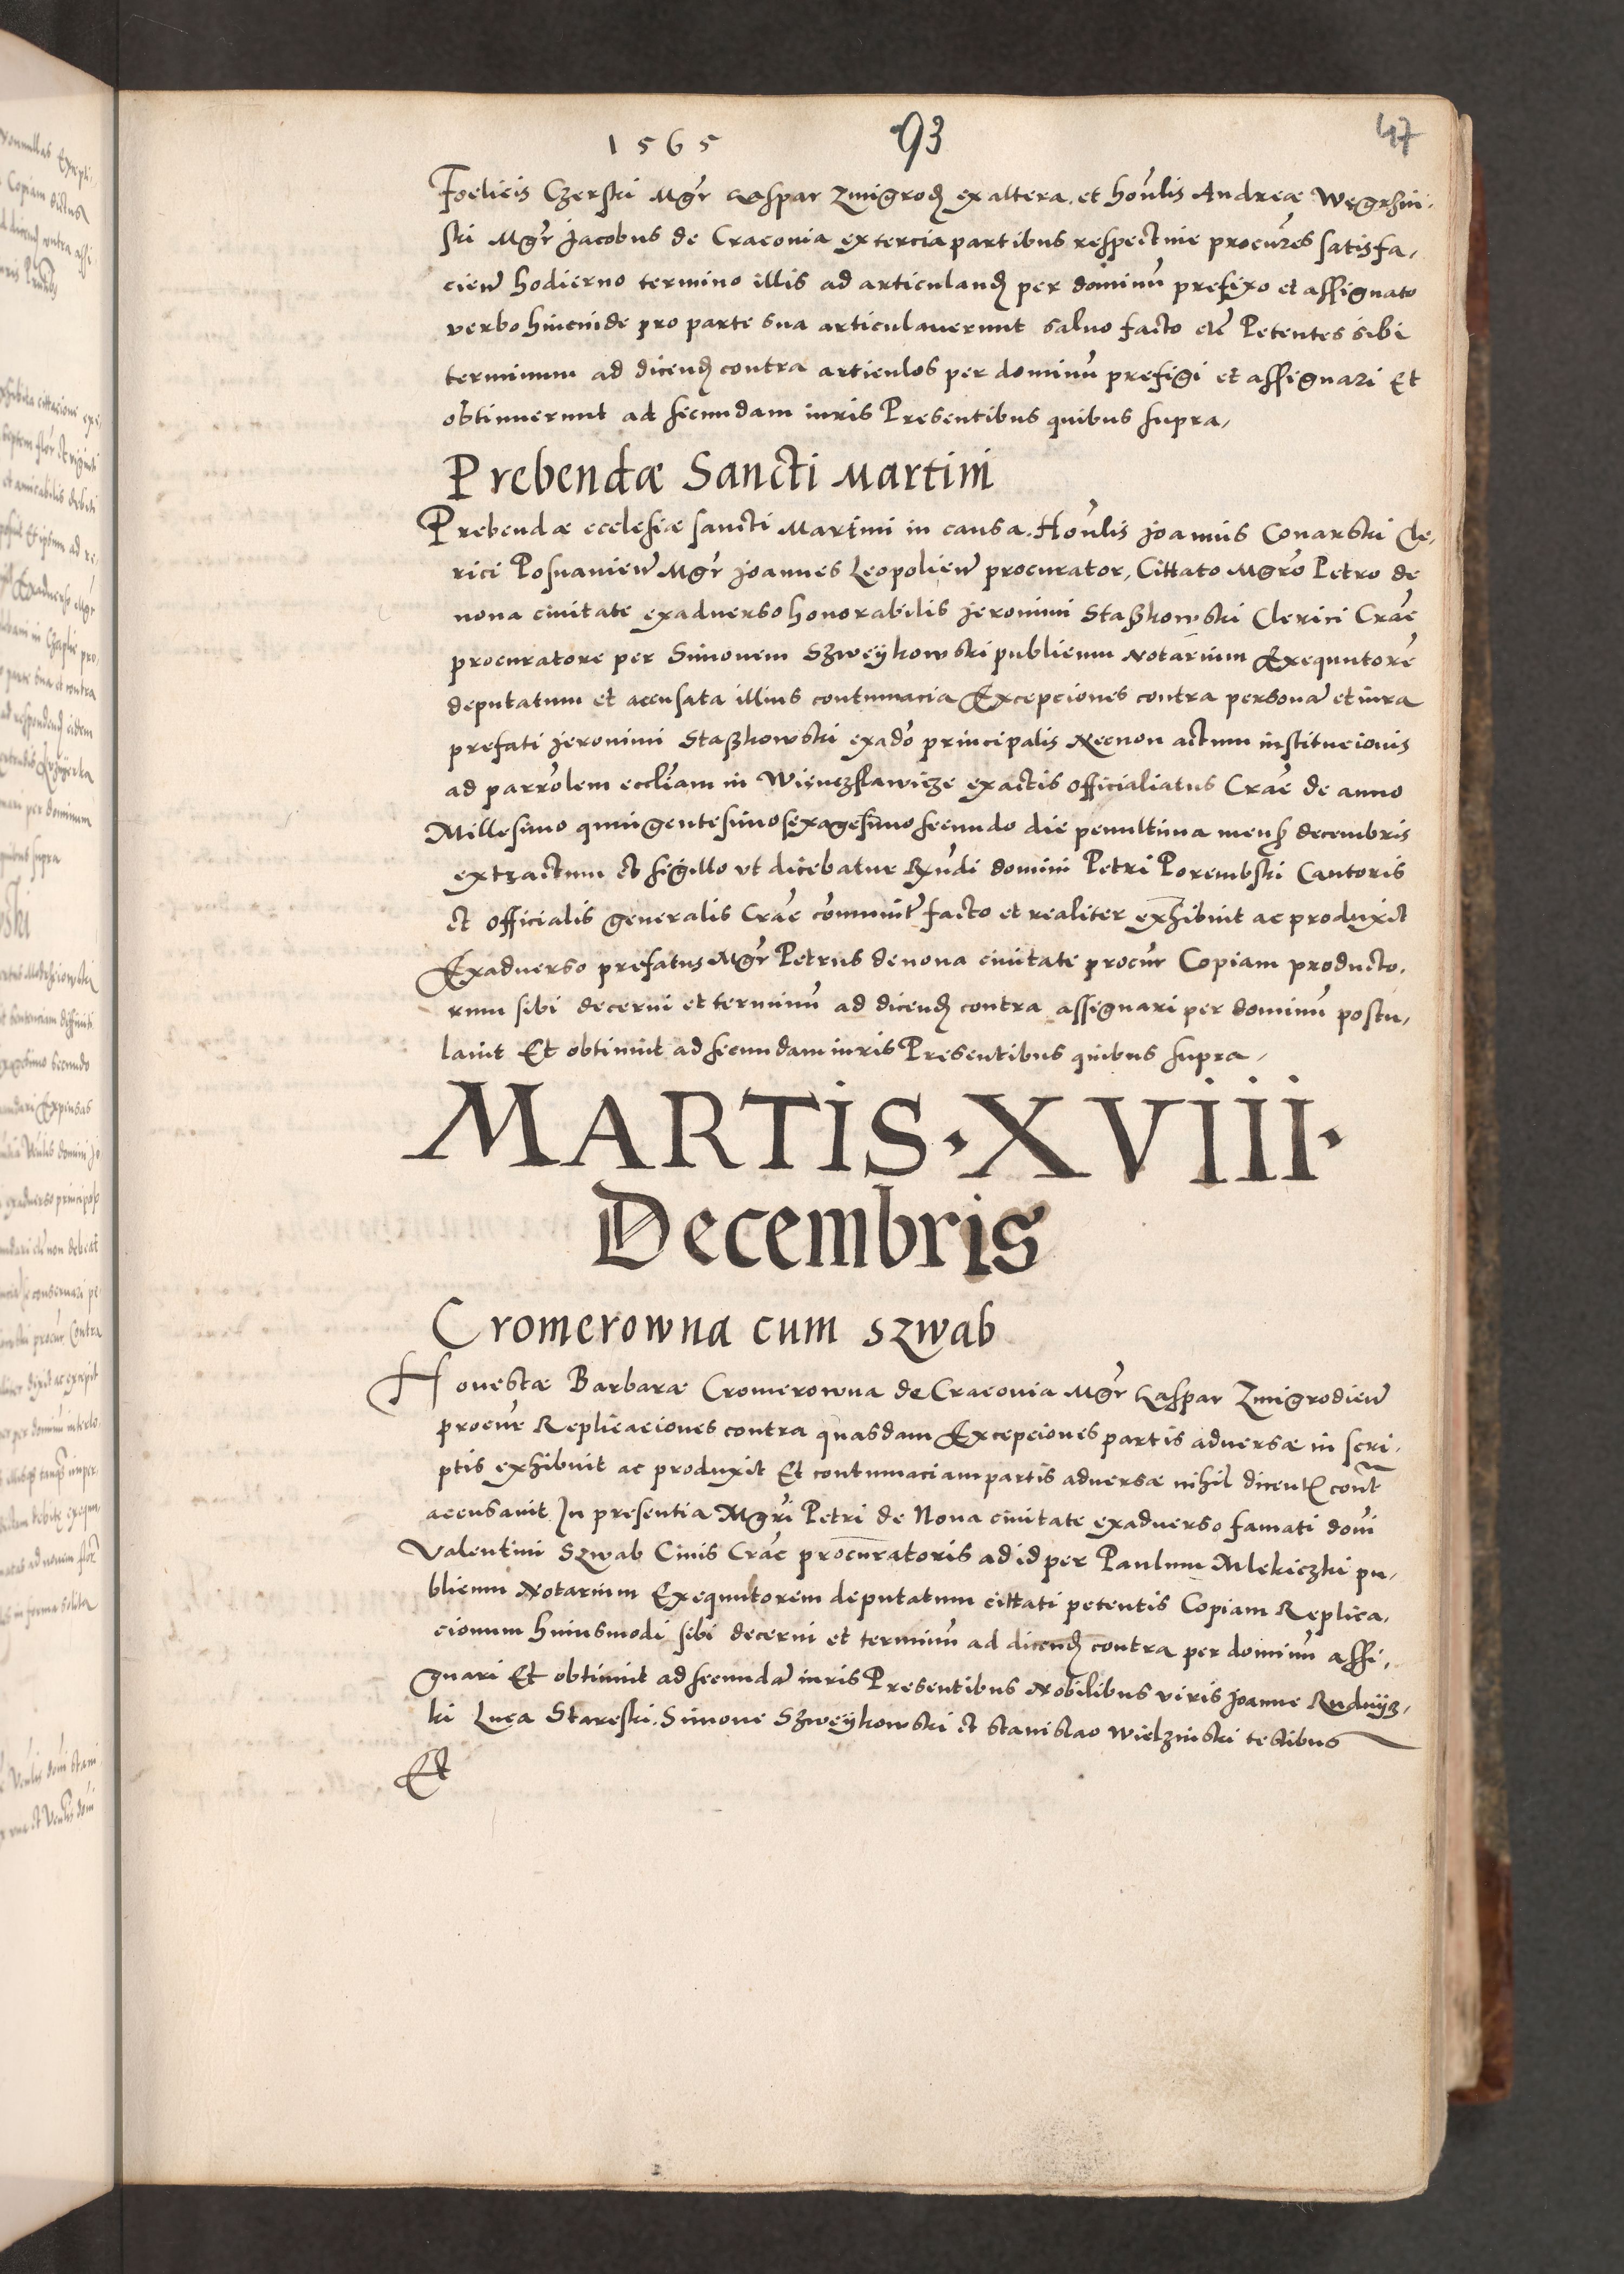 1565 93 47
Foelicis Czerski Mgr̄ Caspar Zmigrod̨ ex altera. et hon̄lis Andreæ Węgrzini-
ski Mgr̄ Jacobus de Cracovia ex tercia partibus respectiue procur̄es satisfa,
cien̄ hodierno termino illis ad articuland̨ per dominū prefixo et assignato
verbo hincinde pro parte sua articulaverunt salvo facto etc̄ Petentes sibi
terminum ad dicend̨ contra articulos per dominū prefigi et assignari Et
obtinuerunt ad secundam iuris Presentibus quibus supra,
Prebendæ Sancti Martini
Prebendæ ecclesiæ sancti Martini in causa. Hon̄lis Joannis Conarski Cle,
rici Posnanien̄ Mgr̄ Joannes Leopolien̄ procurator, Cittato Mgrō Petro de
nova civitate exadverso honorabilis Jeronimi Staszkowski Clerici Crac̄
procuratore per Simonem Szweykowski publicum Notarium Exequutorē
deputatum et accusata illius contumacia Excepciones contra personā et iura
prefati Jeronimi Staszkowski exadō principalis Necnon actum institucionis
ad parrōlem ecclīam in Więnczslawicze ex actis officialiatus Crac̄ de anno
Millesimo quingentesimo sexagesimo secundo die penultima mens̨ decembris
extractum et sigillo ut dicebatur Rvndi domini Petri Porembski Cantoris
et officialis generalis Crac̄ communit̄ facto et realiter exhibuit ac produxit
Exadverso prefatus Mgr̄ Petrus de nova civitate procur̄ Copiam producto,
rum sibi decerni et terminū ad dicend̨ contra assignari per dominū postu,
lavit Et obtinuit ad secundam iuris Presentibus quibus supra,
MARTIS·XVIII·
Decembris
Cromerowna cum szwab
Honestæ Barbaræ Cromerowna de Cracovia Mgr̄ Caspar Zmigrodien̄
procur̄ Replicaciones contra quasdam Excepciones partis adversæ in scri,
ptis exhibuit ac produxit Et contumaciam partis adversæ nihil dicent̨ cont̄
accusavit In presentia Mgrī Petri de Nova civitate exadverso famati domī
Valentini Szwab Civis Crac̄ procuratoris ad id per Paulum Mlekiczki pu,
blicum Notarium Exequutorem deputatum cittati petentis Copiam Replica,
cionum huiusmodi sibi decerni et terminū ad dicend̨ contra per dominū assi,
gnari Et obtinuit ad secundā iuris Presentibus Nobilibus viris Joanne Rudnijz,
ki Luca Stareski. Simone Szweykowski et Stanislao Wielzinski testibus
Et